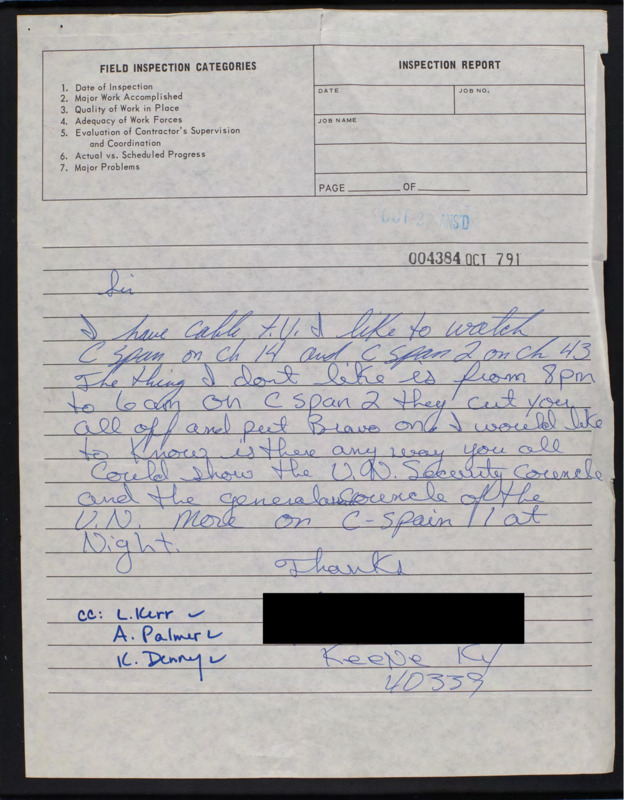 FIELD INSPECTION CATEGORIES
1. Date of Inspection
2. Major Work Accomplished
3. Quality of Work in Place
4. Adequacy of Work Forces
5. Evaluation of Contractor's Supervision
and Coordination
6. Actual vs. Scheduled Progress
7. Major Problems
INSPECTION REPORT
DATE
JOB NO.
JOB NAME
PAGE ______ OF ______
OCT ANS'D
004384 OCT 791
Sir
I have cable t.v. I like to watch
C span on ch 14 and C span 2 on ch 43
The thing I dont like is from 8pm
to 6am on C span 2 they cut you
all off and put Bravo on. I would like
to know is there any way you all
could show the U.N. Security councle
and the general councle of the
U.N. More on C-spain 1 at
Night.
Thanks
cc: L. Kerr ✓
A. Palmer ✓
K. Denny ✓
Keene Ky
40339